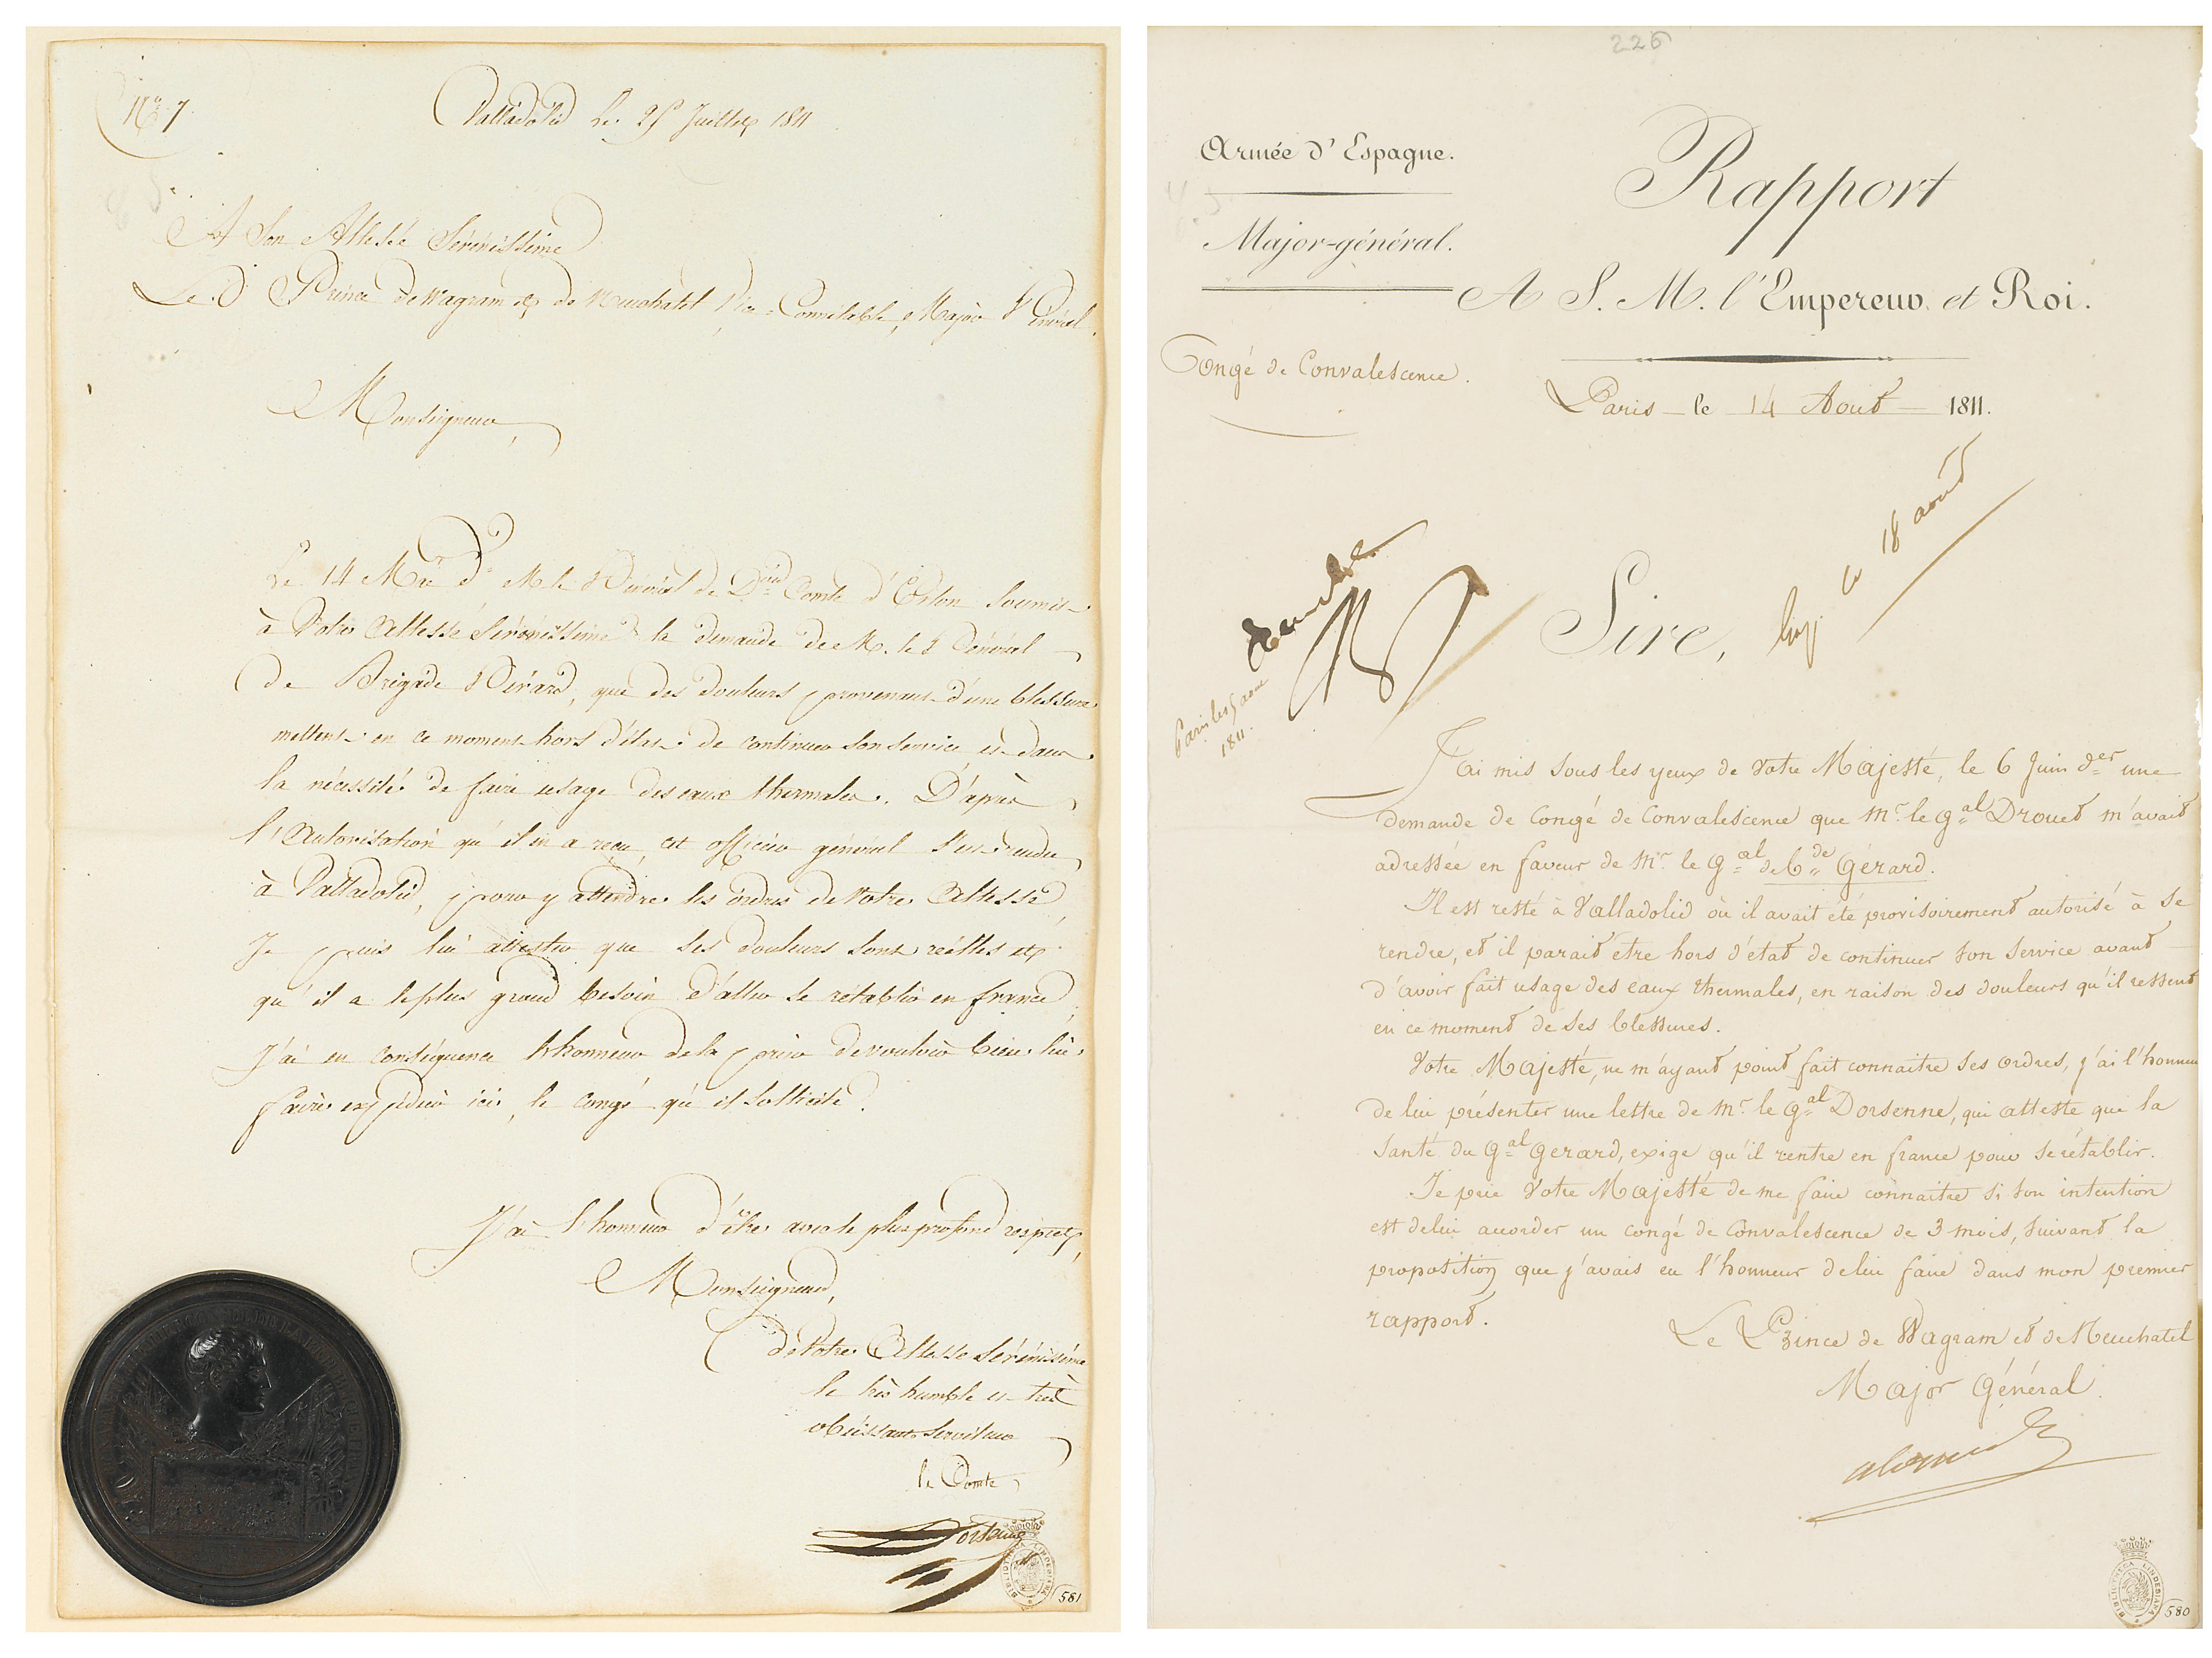 N.º 7
Valladolid Le 25 Juillet 1811
A Son Altesse Sérénissime
Le Prince de Wagram et de Neuchatel Vice-Connétable, Major Général.
Monseigneur,
Le 14 M. le Général de D.on Comte d'Erlon soumit
à Votre Altesse Sérénissime la demande de M. le Général
de Brigade Gérard, que des douleurs provenant d'une blessure
mettent en ce moment hors d'état de continuer son service et dans
la nécessité de faire usage des eaux thermales. D'après
l'autorisation qu'il en a reçu, cet officier général s'est rendu
à Valladolid, pour y attendre les ordres de Votre Altesse
Je puis lui attester que ses douleurs sont réelles et
qu'il a le plus grand besoin d'aller se rétablir en france
J'ai en conséquence l'honneur de la prier de vouloir bien lui
faire expédier ici, le congé qu'il sollicite.
J'ai l'honneur d'être avec le plus profond respect,
Monseigneur,
de Votre Altesse Sérénissime
le très humble et très
obéissant Serviteur
le Comte
Dorsenne
BIBLIOTHECA LINDESIANA
581
226
Armée d'Espagne.
Major-général.
Rapport
A S. M. l'Empereur et Roi.
Congé de Convalescence.
Paris le 14 Aout 1811.
le 18 aout
Sire,
Paris le 15 aout
1811.
J'ai mis sous les yeux de Votre Majesté, le 6 Juin der une
demande de Congé de Convalescence que Mr. le gal Drouet m'avait
adressée en faveur de Mr. le gal de bde Gérard.
Il est resté à Valladolid où il avait été provisoirement autorisé à se
rendre, et il parait etre hors d'état de continuer son service avant
d'avoir fait usage des eaux thermales, en raison des douleurs qu'il ressent
en ce moment de ses blessures.
Votre Majesté, ne m'ayant point fait connaitre ses ordres, j'ai l'honneur
de lui présenter une lettre de Mr. le gal Dorsenne, qui atteste que la
Santé du gal gerard, exige qu'il rentre en france pour se rétablir.
Je prie Votre Majesté de me faire connaitre si son intention
est de lui accorder un congé de Convalescence de 3 mois, suivant la
proposition que j'avais eu l'honneur de lui faire dans mon premier
rapport.
Le Prince de Wagram et de Neuchatel
Major Général.
BIBLIOTHECA LINDESIANA
580